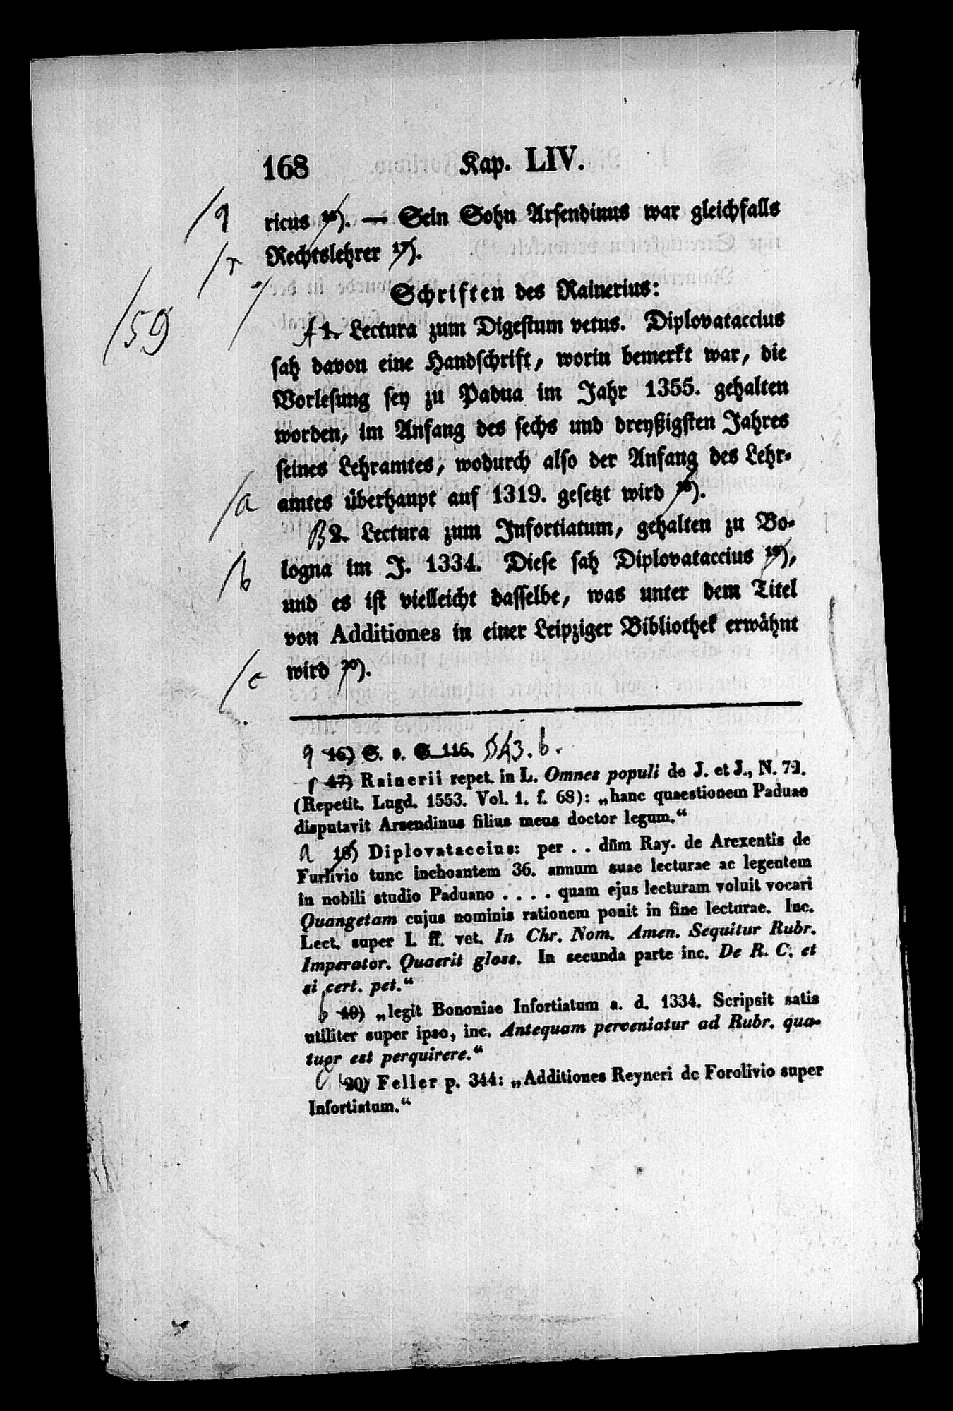 168 Kap. LIV.
/q ricus 16). — Sein Sohn Arsendinus war gleichfalls
/r Rechtslehrer 17).
Schriften des Rainerius:
/59 1. Lectura zum Digestum vetus. Diplovataccius
sah davon eine Handschrift, worin bemerkt war, die
Vorlesung sey zu Padua im Jahr 1355. gehalten
worden, im Anfang des sechs und dreyßigsten Jahres
seines Lehramtes, wodurch also der Anfang des Lehr-
/a amtes überhaupt auf 1319. gesetzt wird 18).
β 2. Lectura zum Infortiatum, gehalten zu Bo-
/b logna im J. 1334. Diese sah Diplovataccius 19),
und es ist vielleicht dasselbe, was unter dem Titel
von Additiones in einer Leipziger Bibliothek erwähnt
/c wird 20).
q 16) S. o. S. 116. 543. b.
r 17) Rainerii repet. in L. Omnes populi de J. et J., N. 72.
(Repetit. Lugd. 1553. Vol. 1. f. 68): „hanc quaestionem Paduae
disputavit Arsendinus filius meus doctor legum.“
a 18) Diplovataccius: per . . dūm Ray. de Arexentis de
Furlivio tunc inchoantem 36. annum suae lecturae ac legentem
in nobili studio Paduano . . . . quam ejus lecturam voluit vocari
Quangetam cujus nominis rationem ponit in fine lecturae. Inc.
Lect. super I. ff. vet. In Chr. Nom. Amen. Sequitur Rubr.
Imperator. Quaerit gloss. In secunda parte inc. De R. C. et
si cert. pet.“
b 19) „legit Bononiae Infortiatum a. d. 1334. Scripsit satis
utiliter super ipso, inc. Antequam perveniatur ad Rubr. qua-
tuor est perquirere.“
c 20) Feller p. 344: „Additiones Reyneri de Forolivio super
Infortiatum.“